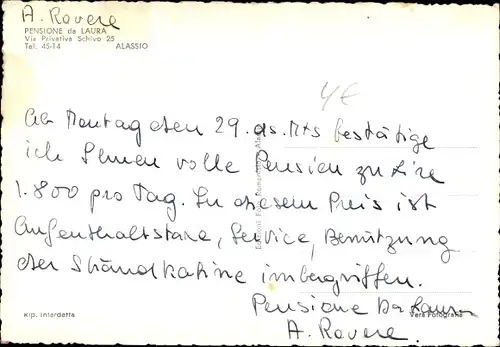 A. Rovere
PENSIONE da LAURA
Via Privativa Schivo 25
Tel. 45-14 ALASSIO
4€
Ab Montag den 29. ds. Mts bestätige
ich Ihnen volle Pension zu Lire
1.800 pro Tag. In diesem Preis ist
Aufenthaltstaxe, Service, Benützung
der Strandkabine inbegriffen.
Pensione Da Laura
A. Rovere.
Rip. Interdetta
Vera Fotografia